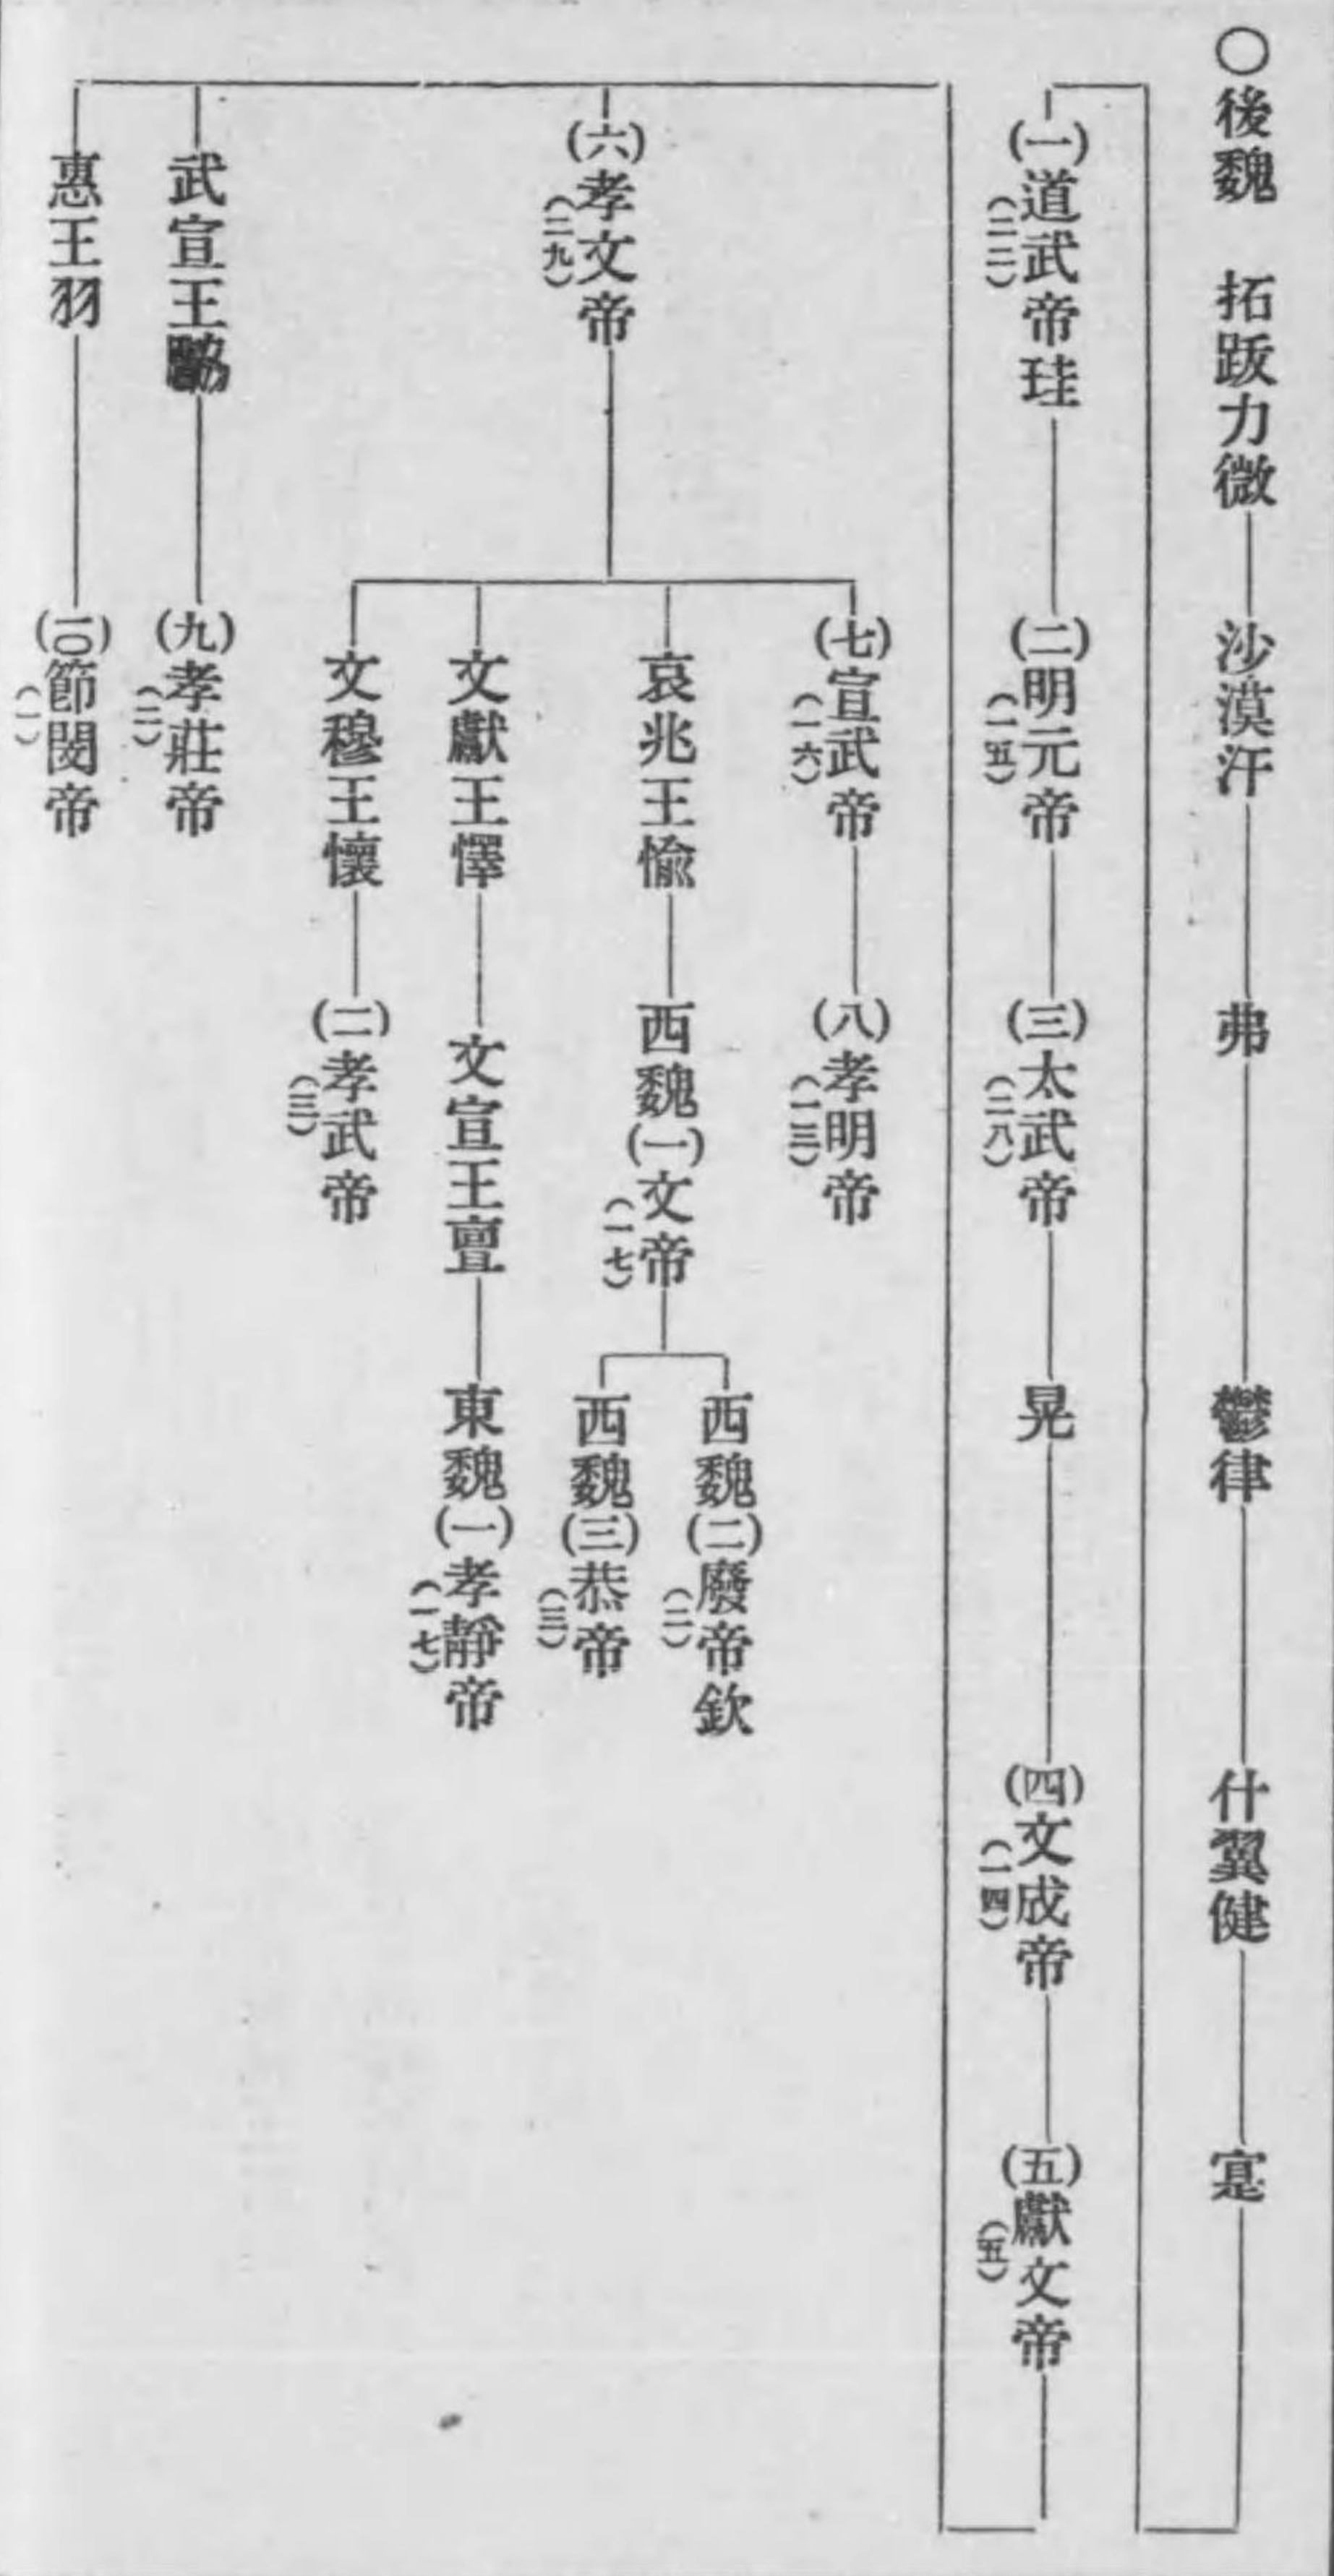 〇後魏 拓跋力微 沙漠汗 弗 鬱律 什翼健 寔
(一)道武帝珪(二二) (二)明元帝(一五) (三)太武帝(二八) 晃 (四)文成帝(一四) (五)獻文帝(五)
(六)孝文帝(二九)
(七)宣武帝(一六) (八)孝明帝(一三)
哀兆王愉 西魏(一)文帝(一七)
西魏(二)廢帝欽(二)
西魏(三)恭帝(三)
文獻王懌 文宣王亶 東魏(一)孝靜帝(一七)
文穆王懷 (二)孝武帝(三)
武宣王 (九)孝莊帝(二)
惠王羽 (一〇)節閔帝(一)